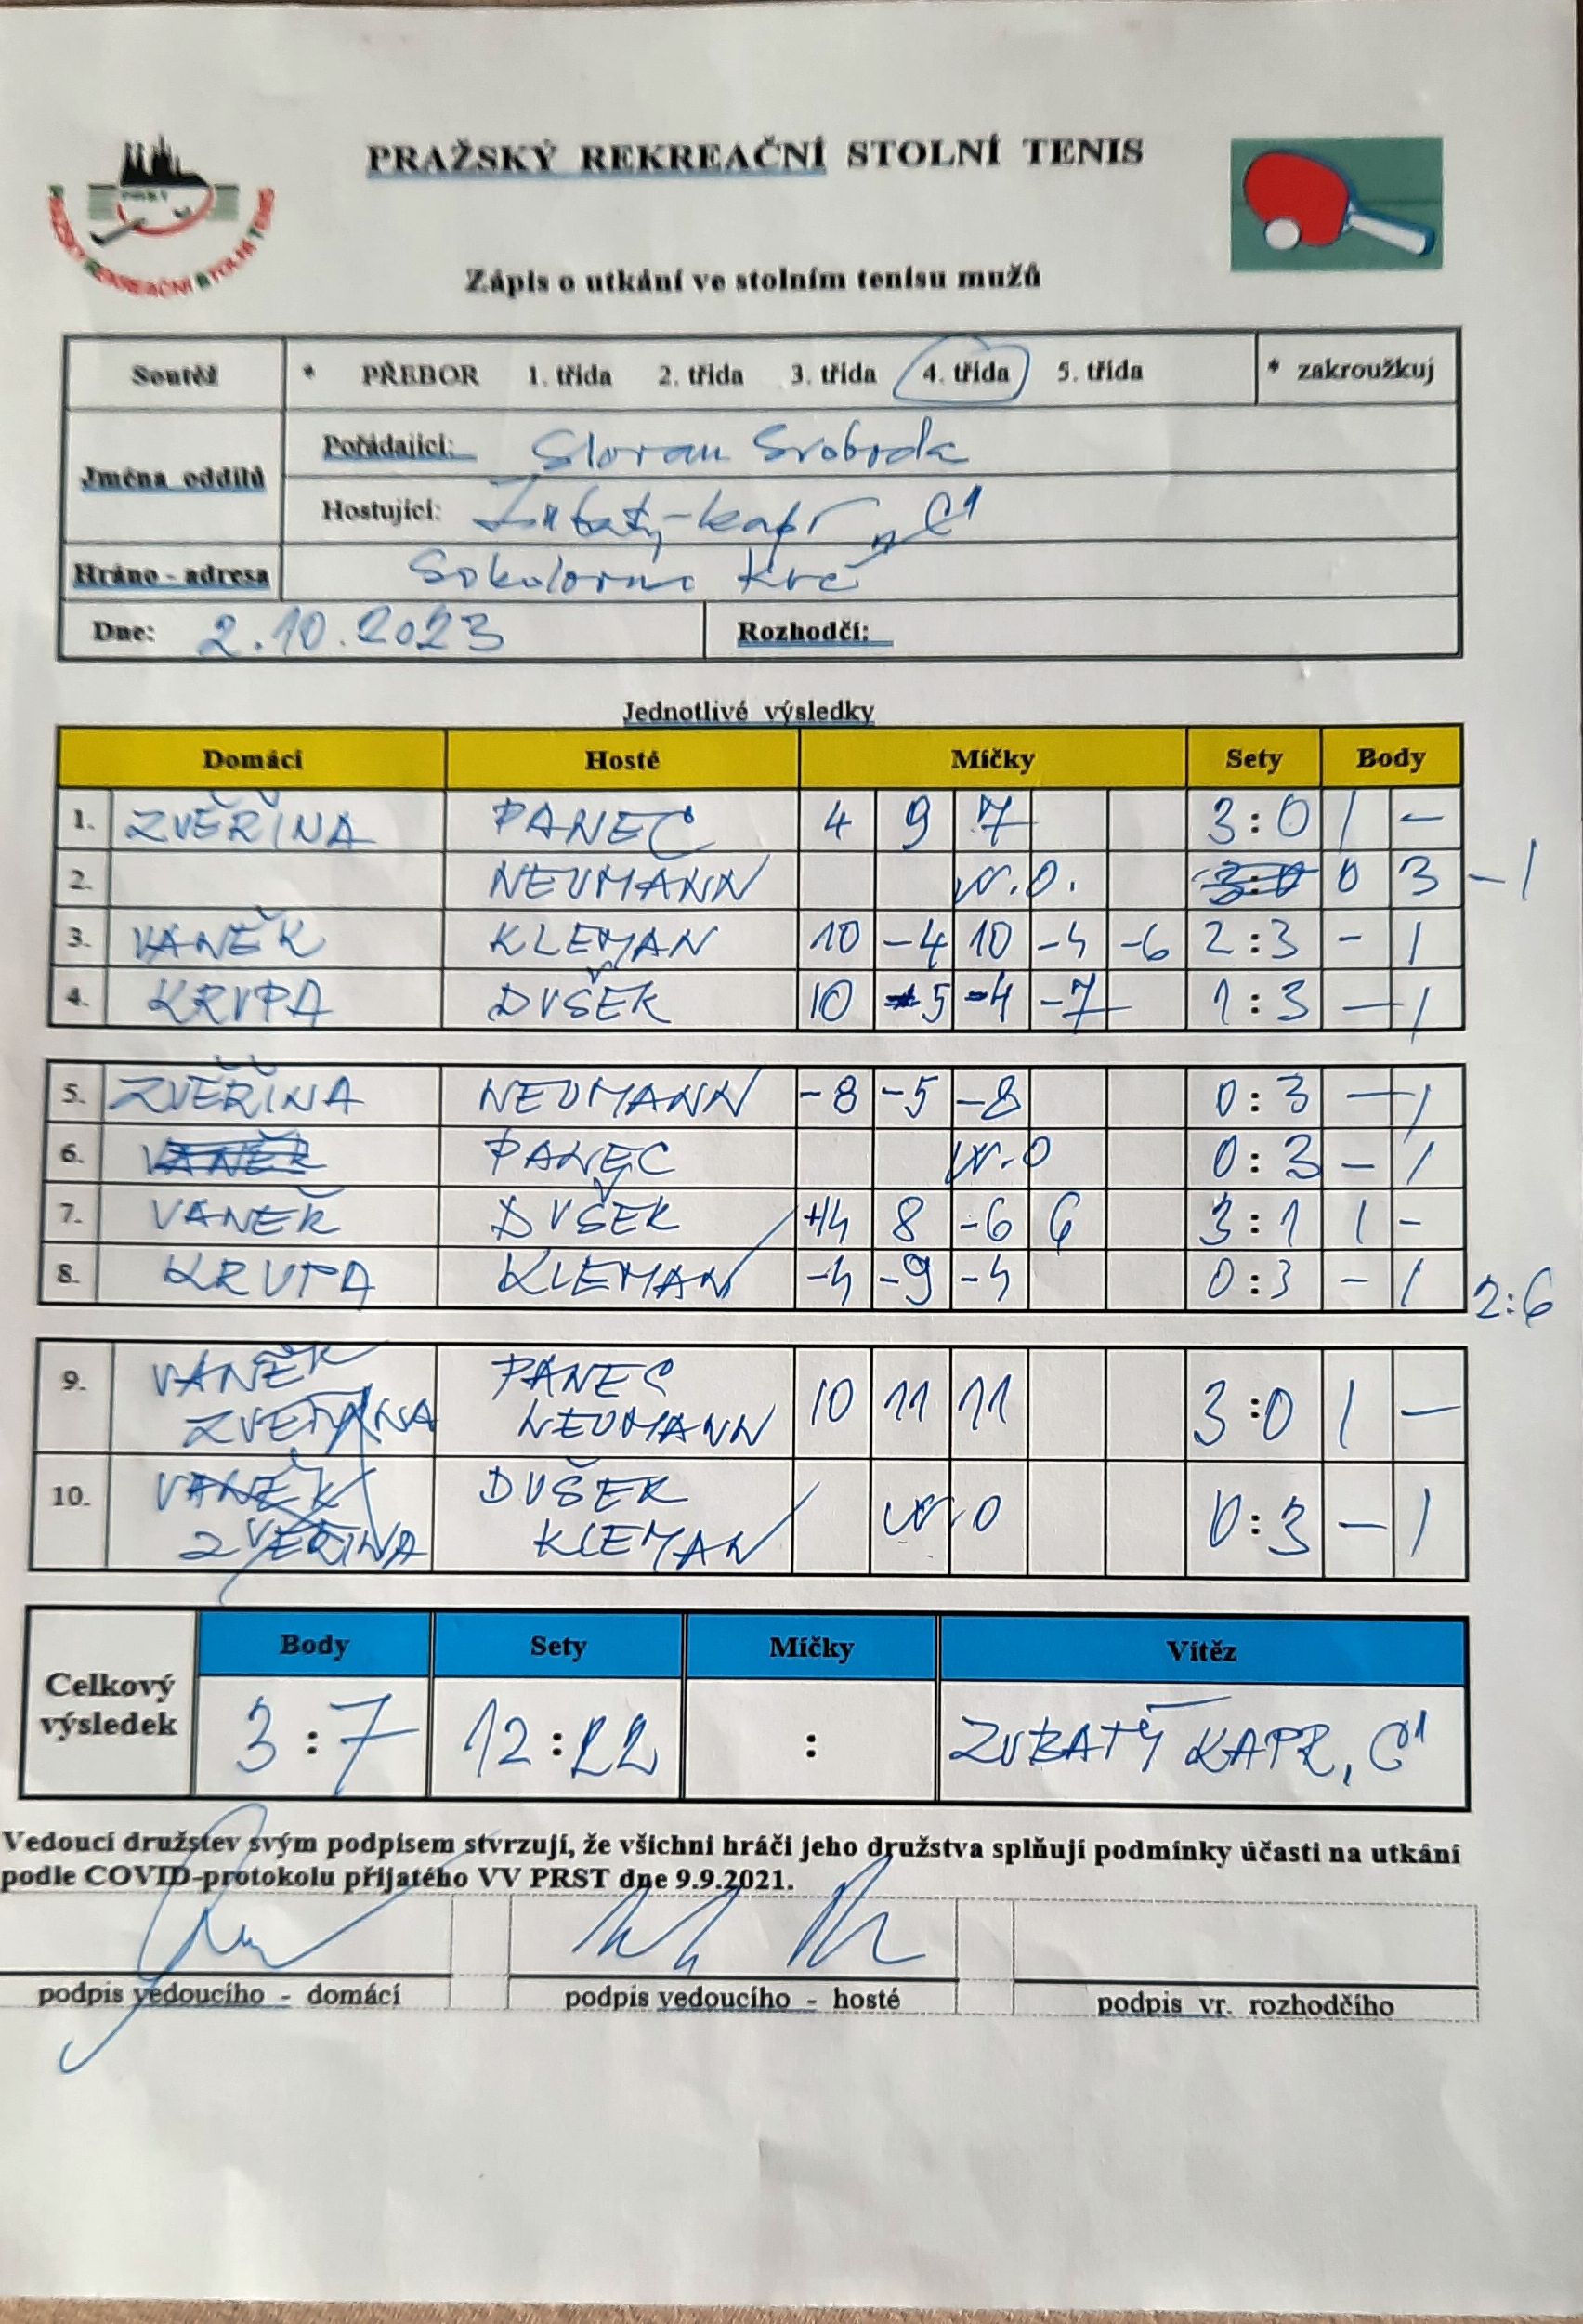 PRAŽSKÝ REKREAČNÍ STOLNÍ TENIS
PRAŽSKÝ REKREAČNÍ STOLNÍ TENIS
Zápis o utkání ve stolním tenisu mužů
Soutěž * PŘEBOR 1. třída 2. třída 3. třída 4. třída 5. třída * zakroužkuj
Jména oddílů
Pořádající: Slovan Svoboda
Hostující: Zubatý kapr „C"
Hráno - adresa Sokolovna Krč
Dne: 2.10.2023 Rozhodčí:
Jednotlivé výsledky
Domácí Hosté Míčky Sety Body
1. ZVĚŘINA PANEC 4 9 7 3:0 1 -
2. NEUMANN W.O. 0 3 -1
3. VANĚK KLEMAN 10 -4 10 -4 -6 2:3 - 1
4. KRUPA DUŠEK 10 -5 -4 -7 1:3 - 1
5. ZVĚŘINA NEUMANN -8 -5 -8 0:3 - 1
6. VANĚK PANEC W.O 0:3 - 1
7. VANĚK DUŠEK +4 8 -6 6 3:1 1 -
8. KRUPA KLEMAN -4 -9 -4 0:3 - 1
2:6
9. VANĚK PANEC 10 11 11 3:0 1 -
ZVEŘINA NEUMANN
10. VANĚK DUŠEK W.O 0:3 - 1
ZVEŘINA KLEMAN
Celkový výsledek
Body Sety Míčky Vítěz
3:7 12:22 : ZUBATÝ KAPR „C"
Vedoucí družstev svým podpisem stvrzují, že všichni hráči jeho družstva splňují podmínky účasti na utkání
podle COVID-protokolu přijatého VV PRST dne 9.9.2021.
podpis vedoucího - domácí podpis vedoucího - hosté podpis vr. rozhodčího